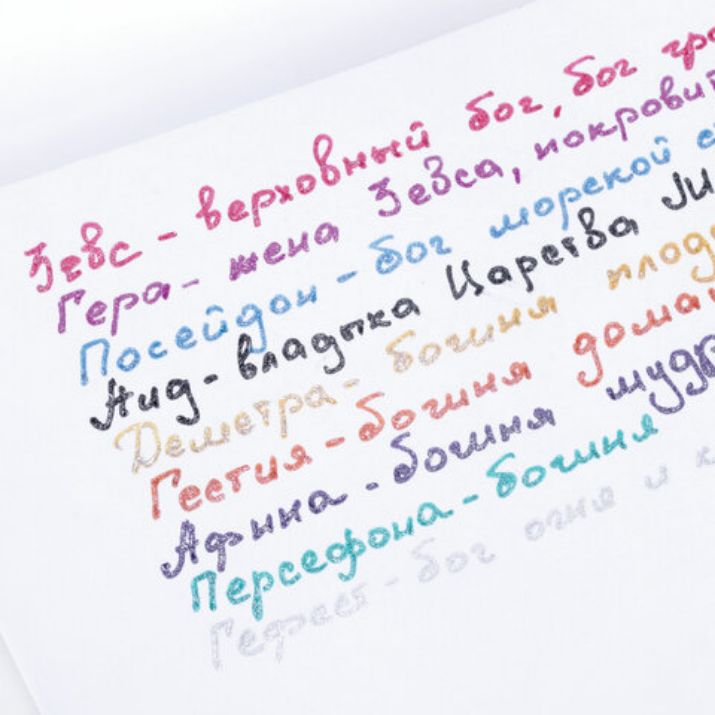 Зевс - верховный бог, бог гро
Гера - жена Зевса, покрови
Посейдон - бог морской с
Аид - владыка Царства М
Деметра - богиня плод
Гестия - богиня дома
Афина - богиня мудр
Персефона - богиня
Гефест - бог огня и к